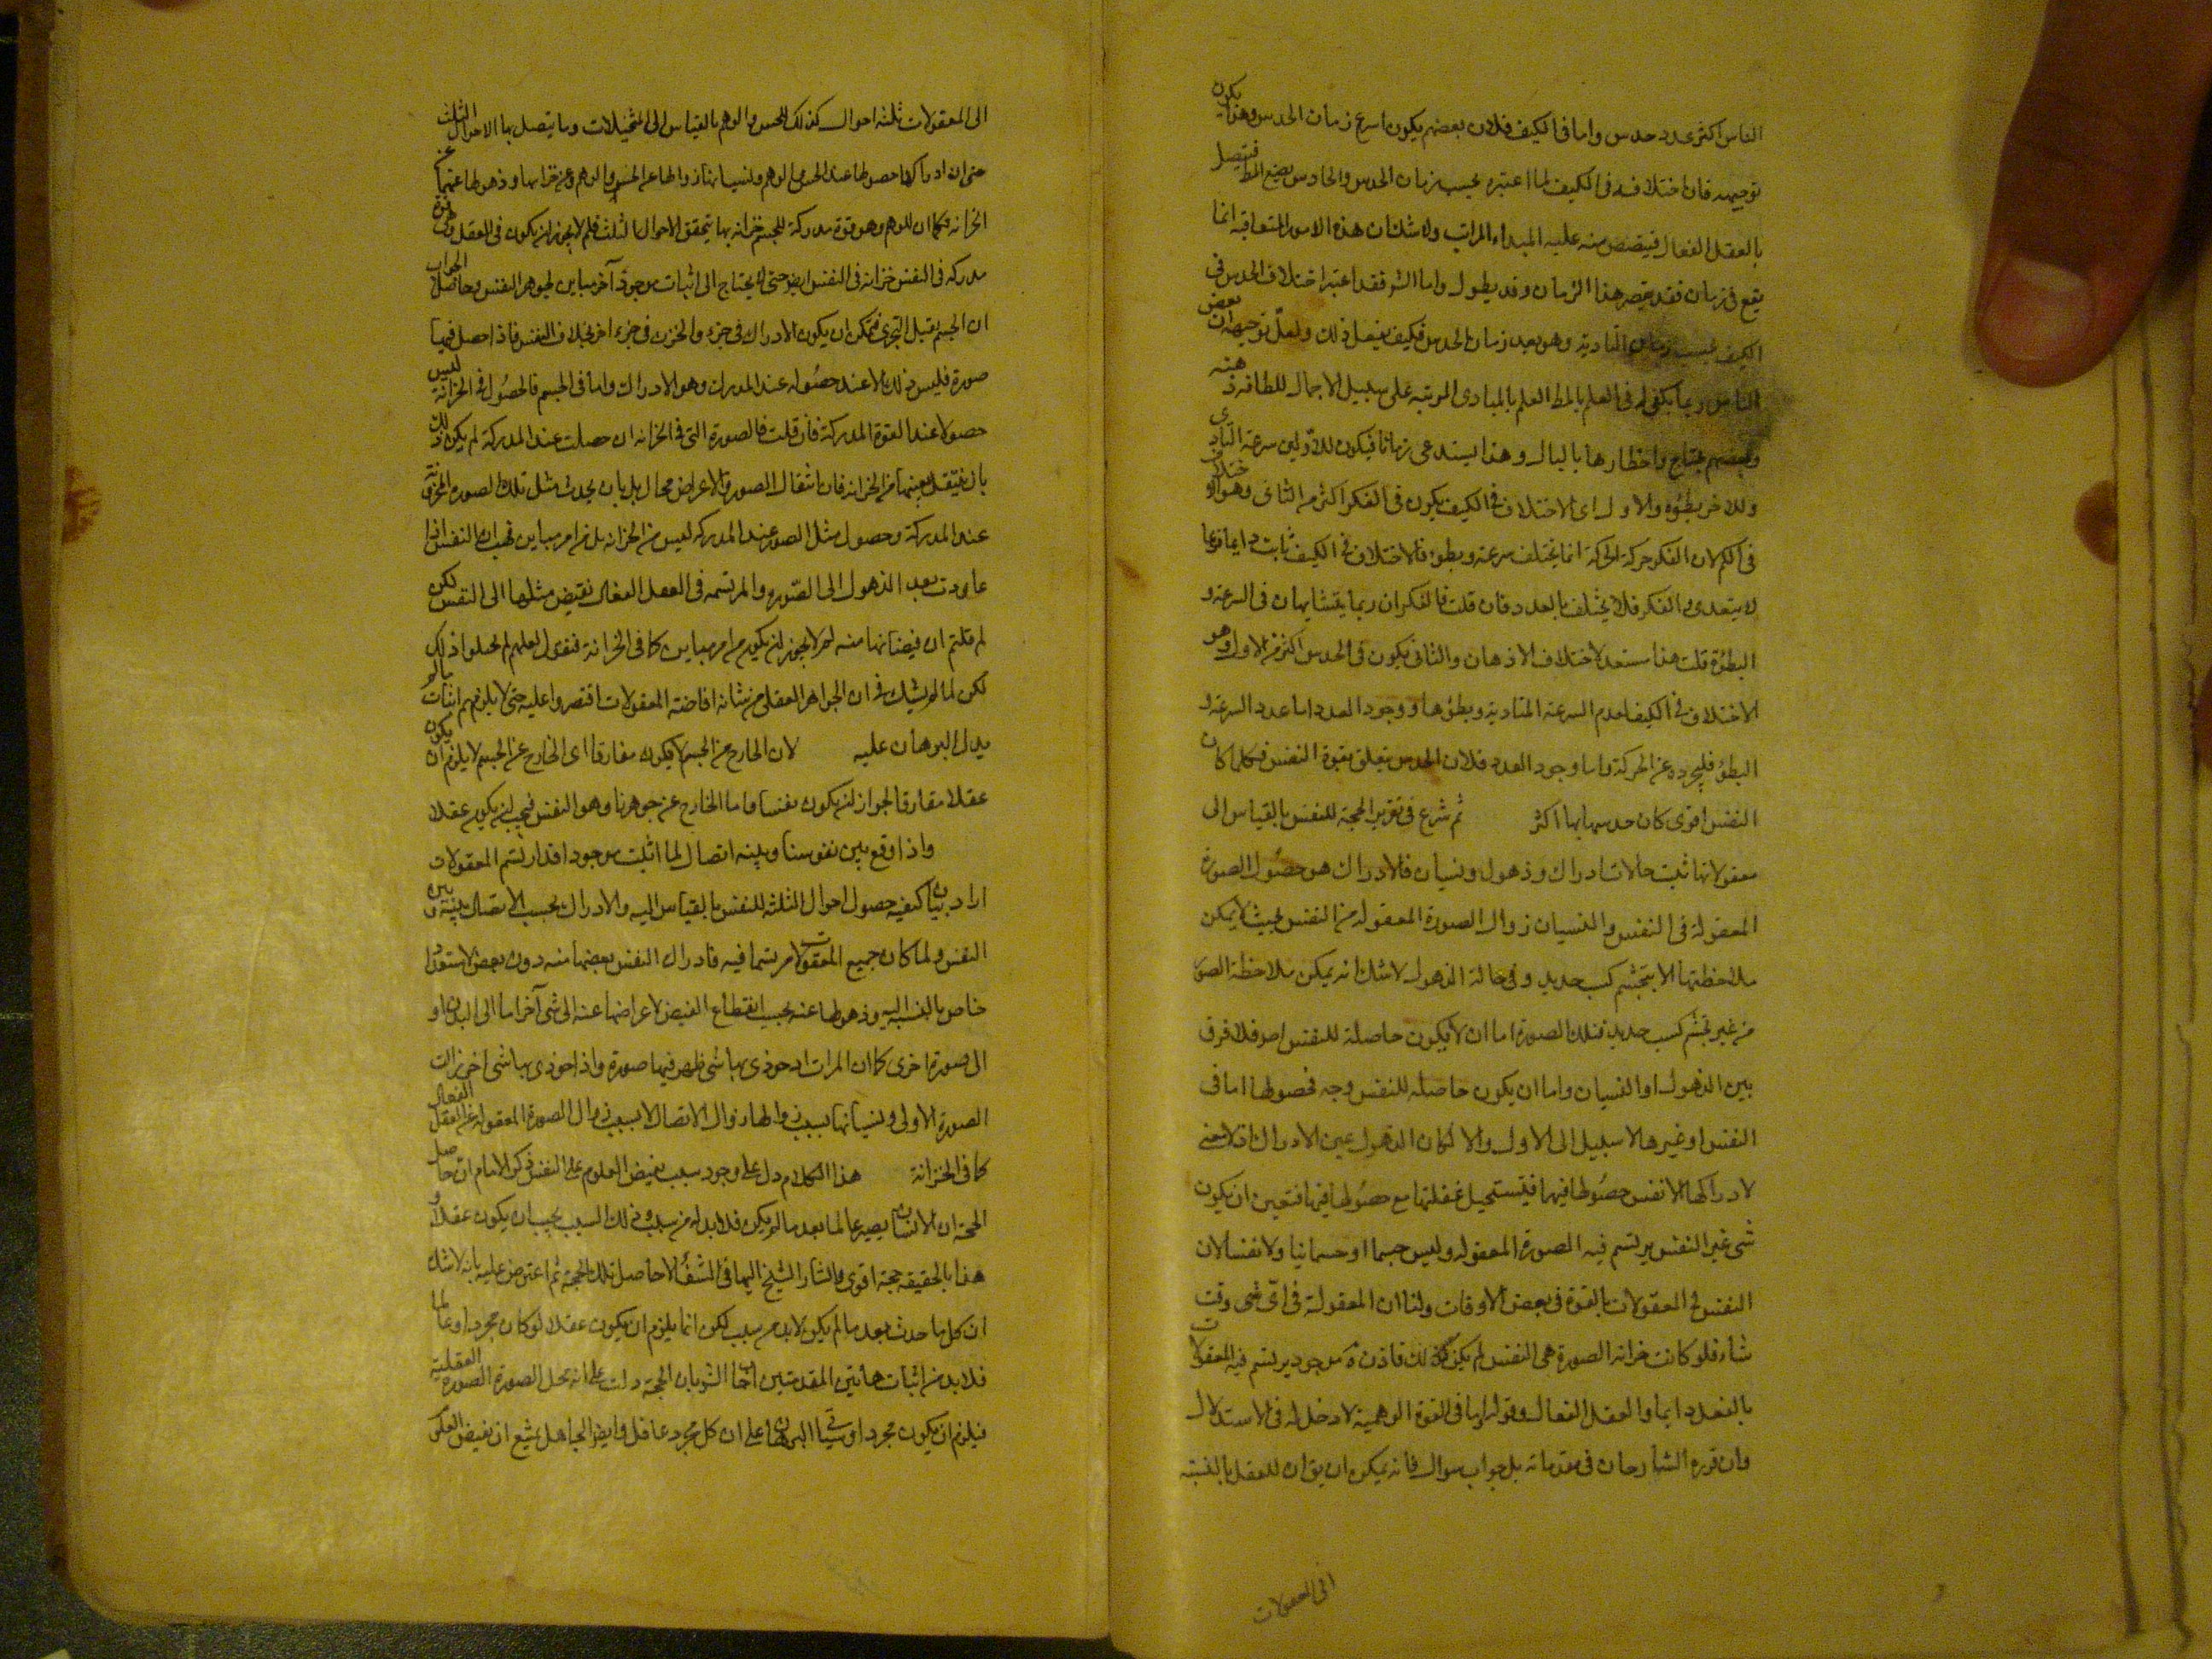 الناس اكثر عدد حدس واما فى الكيف فلان بعضهم يكون اسرع زمان الحدس وهذا يكون
توجيهه فان اختلافه فى الكيف لما اعتبره بحسب زمان الحدس والحادس يضع المط فيتصل
بالعقل الفعال فيفيض منه عليه المبداء المراتب ولا شك ان هذه الامور المتعاقبه انما
يقع فى زمان فقد يقصر هذا الزمان وقد يطول واما الش فقد اعتبر اختلاف الحدس فى
الكيف بحسب زمان التاديه وهو بعد زمان الحدس فكيف يفصل ذلك ولعل توجيهه ان بعض
الناس ربما يكفى له فى العلم بالمط العلم بالمبادى المرتبه على سبيل الاجمال للطافه ذهنه
وبعضهم يحتاج واخطارها بالبال وهذا يستدعى زمانا فيكون للاولين سرعة التادى
وللاخر بطؤه والاول اى الاختلاف فى الكيف يكون فى الفكر اكثر من الثانى وهو اختلاف
فى الكم لان الفكر حركة والحركة انما يختلف سرعة وبطوء فالاختلاف فى الكيف ثابت دايما
لا يتعدى والفكر فلا يختلف بالعدد فان قلت فالفكران ربما يتشابهان فى السرعة و
البطؤة قلت هذا مستبعد لاختلاف الاذهان والثانى يكون فى الحدس اكثر من الاول وهو
الاختلاف فى الكيف لعدم السرعة المتاديه وبطؤها ووجود العدد اما عدم السرعة و
البطؤ فليجرده عن الحركة واما وجود العدد فلان الحدس يتعلق بقوة النفس فكلما كان
النفس اقوى كان حدسها بها اكثر ثم شرع فى تقرير الحجة للنفس بالقياس الى
معقولاتها ثلث حالات ادراك وذهول ونسيان فالادراك هو حصول الصورة
المعقولة فى النفس والنسيان زوال الصورة المعقوله من النفس بحيث لا يمكن
ملاحظتها الا بتجشم كسب جديد وفى حالة الذهول لا شك انه يمكن ملاحظة الصو
من غير تجشم كسب جديد فتلك الصورة اما ان لا يكون حاصلة للنفس اصو فلا فرق
بين الذهول او النسيان واما ان يكون حاصله للنفس وجه فحصولها اما فى
النفس او غيرها لا سبيل الى الاول والا لكان الذهول عين الادراك اذ لا معنى
لادراكها الا نفس حصولها فيها فيستحيل غفلتها مع حصولها فيها فتعين ان يكون
شى غير النفس يرتسم فيه الصورة المعقوله وليس جسما او جسمانيا ولا نفسا لان
النفس فى المعقولات بالقوة فى بعض الاوقات ولنا ان المعقولة فى اى شى وقت
شاء فلو كانت خزانه الصورة هى النفس لم يكن كذلك فاذن ة موجود يرتسم فيه المعقولات
بالفعل دايما والعقل الفعال وقوله اما فى القوة الوهمية لا دخل له فى الاستدلال
وان قرره الشارحان فى مقدماته بل جواب سوال فانه يمكن ان يق ان للعقل بالنسبة
الى المعقولات
الى المعقولات ثلثه احوال كذلك للحس والوهم بالقياس الى المتخيلات وما يتصل بها الاحوال الثلث
حتى ان ادراكها حصولها عند الحس والوهم ونسيانها زوالها عن الحس والوهم وعن خزانها وذهولها عنهما عن
الخزانه فكما ان للوهم وهو قوة مدركة للجسم خزانه بها يتحقق الاحوال الثلث فلم لا يجوز ان يكون فى العقل وهى قوة
مدركه فى النفس خزانه فى النفس ايض حتى لا يحتاج الى اثبات موجود آخر مباين لجوهر النفس وحاصل الجواب
ان الجسم يقبل التجزى فيمكن ان يكون الادراك فى جزء والخزن فى جزء اخر بخلاف النفس فاذا حصل فيها
صورة فليس ذلك الا عند حصوله عند المدرك وهو الادراك واما فى الجسم فالحصول فى الخزانة ليس
حصولا عند القوة المدركة فان قلت فالصورة التى فى الخزانه ان حصلت عند المدركة لم يكن ذلك
بان ينتقل بعينها من الخزانه فان انتقال الصور والاعراض محال بل بان يحدث مثل تلك الصوره المخزونة
عند المدركة وحصول مثل الصور عند المدركه ليس من الخزانه بل من امر مباين فهب ان النفس اذا
عاودت بعد الذهول الى الصوره والمرتسمه فى العقل الفعال نفيض مثلها الى النفس لكن
لم قلتم ان فيضانها منه لم لا يجوز ان يكون من امر مباين كما فى الخزانة فنقول لعلهم لم يحيلوا ذلك
لكن لما لم يشك فى ان الجواهر العقلى من شانه افاضته المعقولات اقتصروا عليه حتى لا يلزمهم اثبات مالم
يدل البرهان عليه لان الخارج عن الجسم لا يكون مفارقا اى الخارج عن الجسم لا يلزم ان يكون
عقلا مفارقا لجواز ان يكون نفسا واما الخارج عن جوهرنا وهو النفس فيجب ان يكون عقلا
واذا وقع بين نفوسنا وبينه اتصال لما اثبت موجودا قد ارتسم المعقولات
اراد بيان كيفيه حصول احوال الثلثه للنفس بالقياس اليه والادراك بحسب الاتصال بينه وبين
النفس ولما كان جميع المعقولات مرتسما فيه فادراك النفس بعضها منه دون بعض لاستعداد
خاص بالنسبه اليه وذهولها عنه بحسب انقطاع الفيض لاعراضها عنه الى شى آخر اما الى البدن او
الى صورة اخرى كما ان المرات اذ حوذى بها شى ظهر فيها صورة واذا حوذى بها شى اخر زالت
الصورة الاولى ونسيانها بسبب زوالها زوال الاتصال لا بسبب زوال الصورة المعقوله عن العقل الفعال
كما فى الخزانة هذا الكلام دل على وجود سبب يفيض العلوم على النفس ذكر الامام ان حاصل
الحجة ان الانسان يصير عالما بعد ما لم يكن فلا بد له من سبب وذلك السبب يجب ان يكون عقلا و
هذا بالحقيقه حجة اقوى واشار الشيخ اليها فى الشفا لا حاصل تلك الحجة ثم اعترض عليه بانه لا شك
ان كل ما حدث بعد ما لم يكن لا بد من سبب لكن انما يلزم ان يكون عقلا لو كان مجردا وعالما
فلا بد من اثبات هاتين المقدمتين اجاب الش بان الحجة دلت على انه محل الصورة الصورة العقلية
فيلزم ان يكون مجردا وسياتى البرهان على ان كل مجرد عاقل وايض الجاهل يمتنع ان يفيض العلم